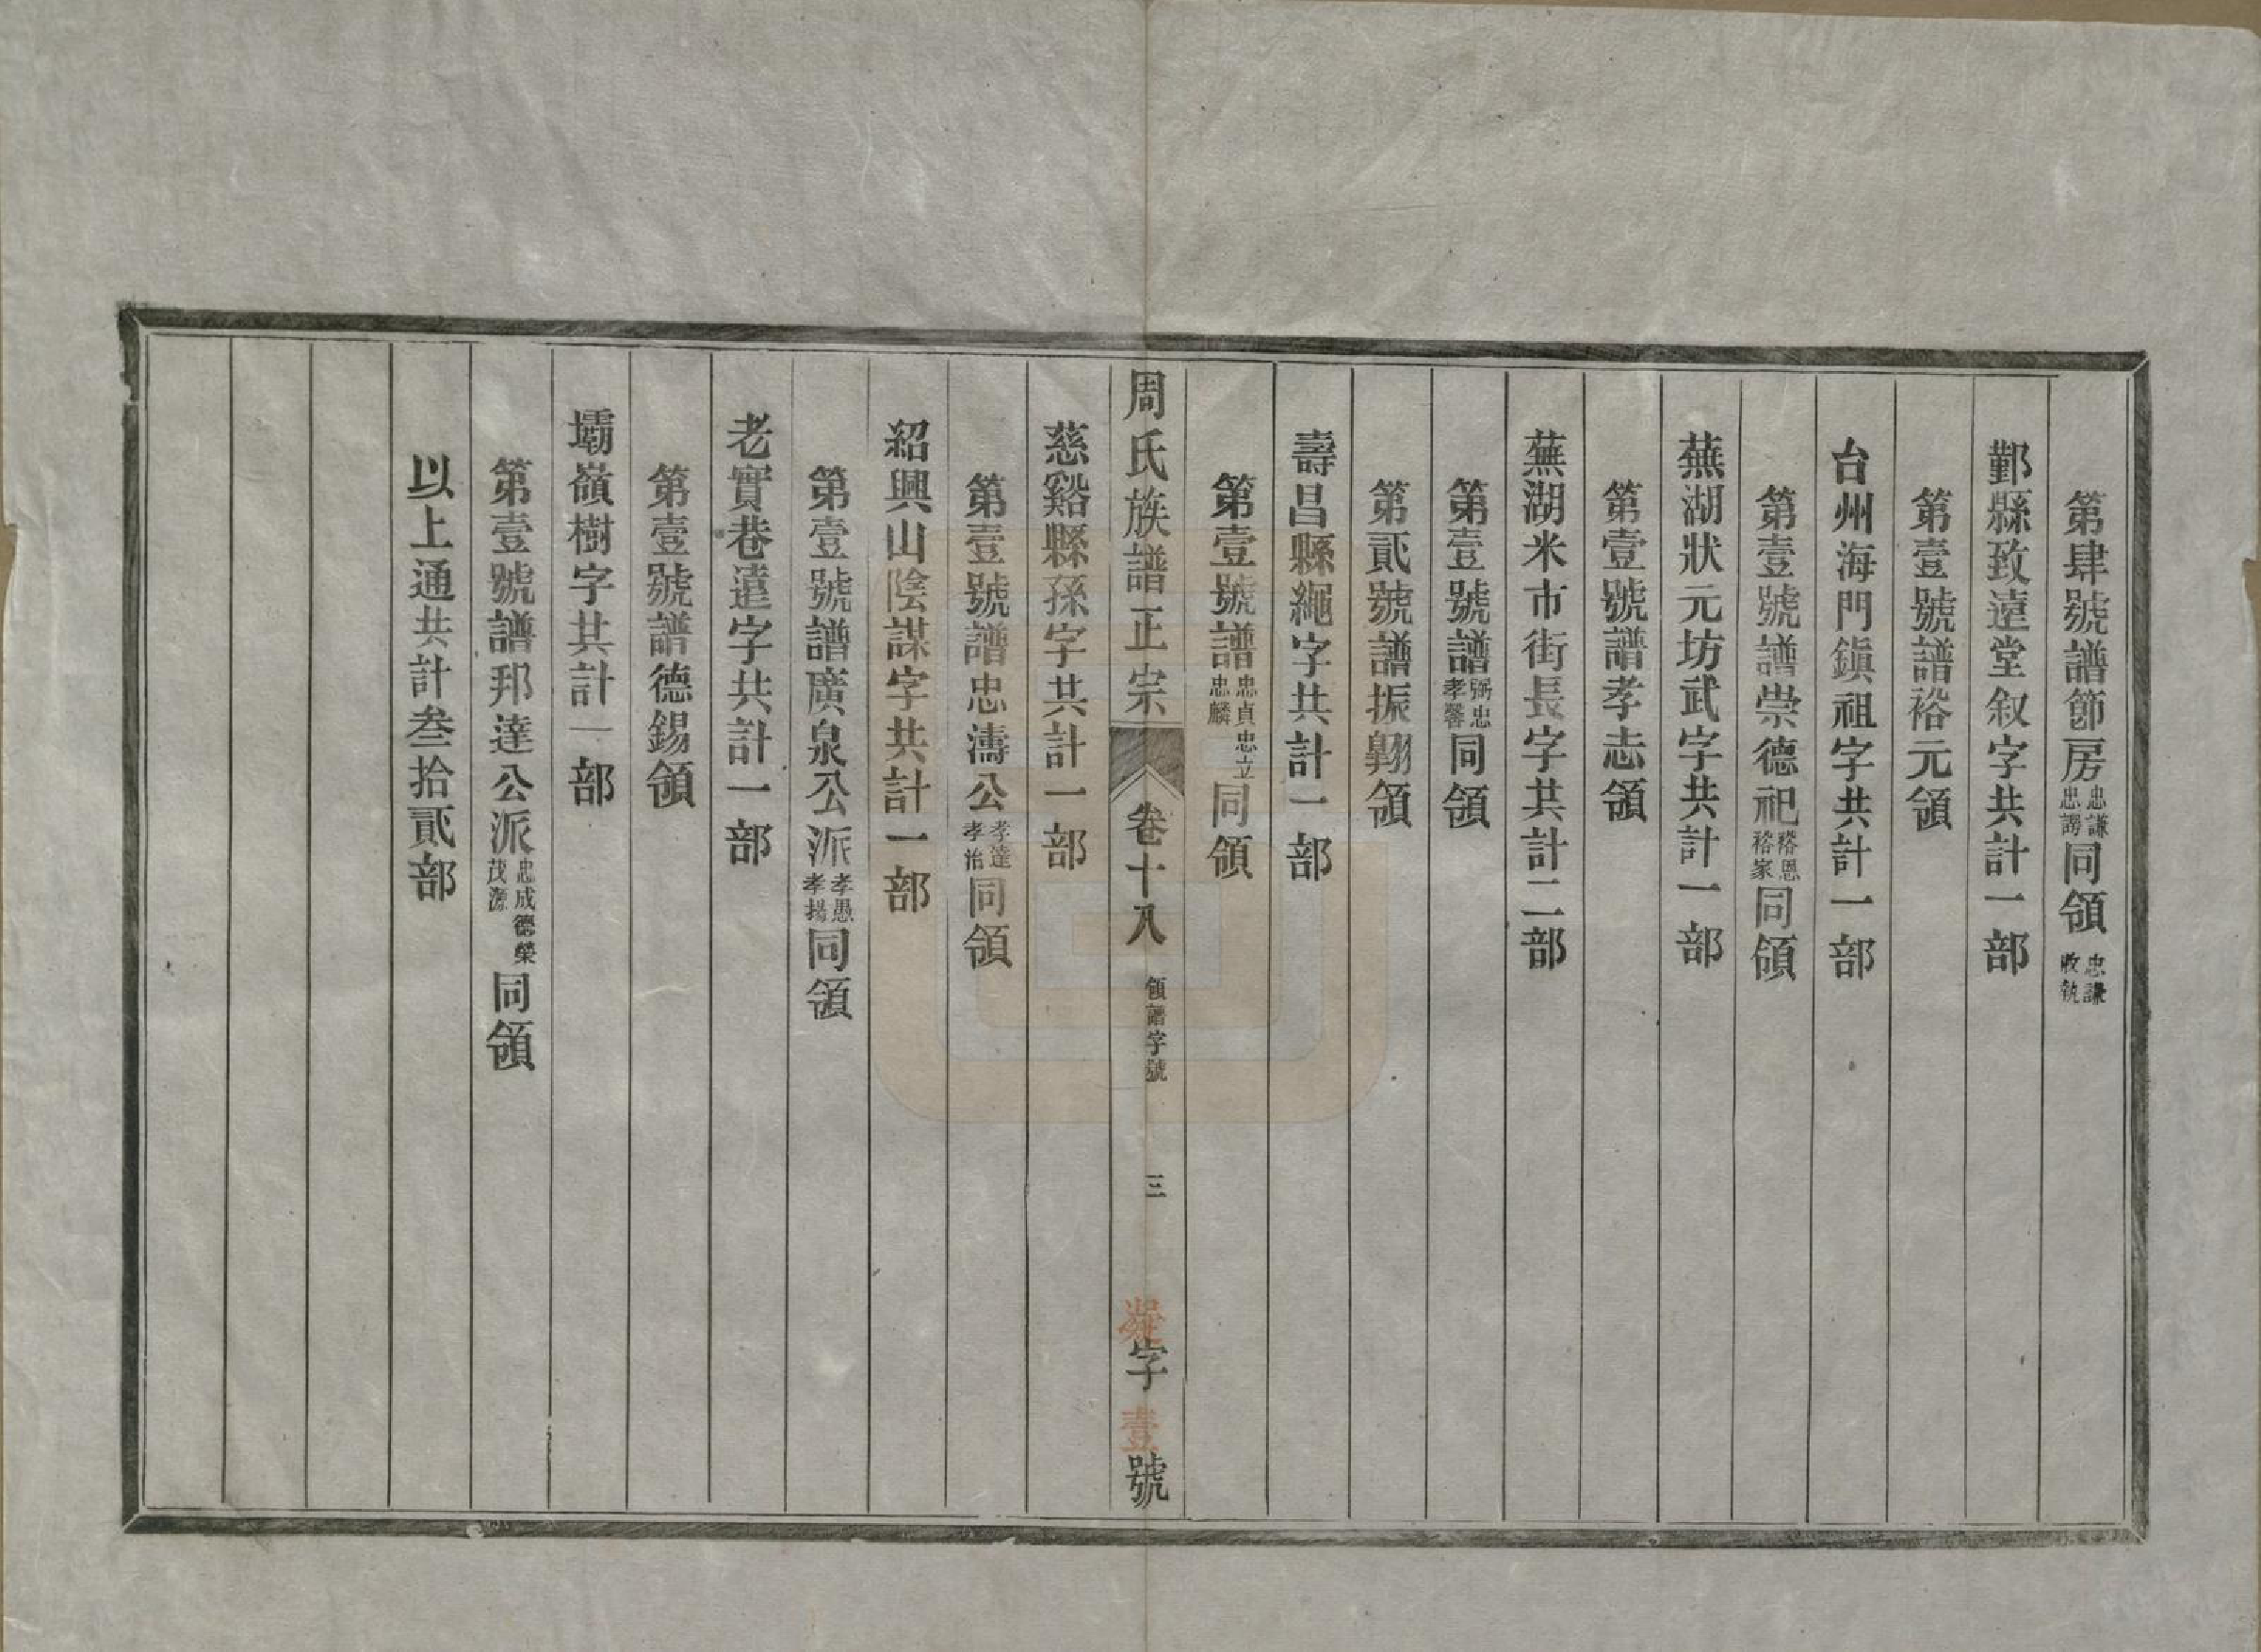 第肆號譜節房忠謙忠謌同領忠謙收執
鄞縣致遠堂叙字共計一部
第壹號譜裕元領
台州海門鎭祖字共計一部
第壹號譜崇德祀裕恩裕家同領
蕪湖狀元坊武字共計一部
第壹號譜孝志領
蕪湖米市街長字共計二部
第壹號譜弼忠孝馨同領
第貳號譜振翺領
壽昌縣繩字共計一部
第壹號譜忠貞忠立忠麟同領
周氏族譜正宗 卷十八 領譜字號 三 字壹號
慈谿縣孫字共計一部
第壹號譜忠濤公孝達孝治同領
紹興山陰謀字共計一部
第壹號譜廣泉公派孝愚孝揚同領
老實巷遠字共計一部
第壹號譜德錫領
壩嶺樹字共計一部
第壹號譜邦達公派忠成德榮茂源同領
以上通共計叄拾貳部